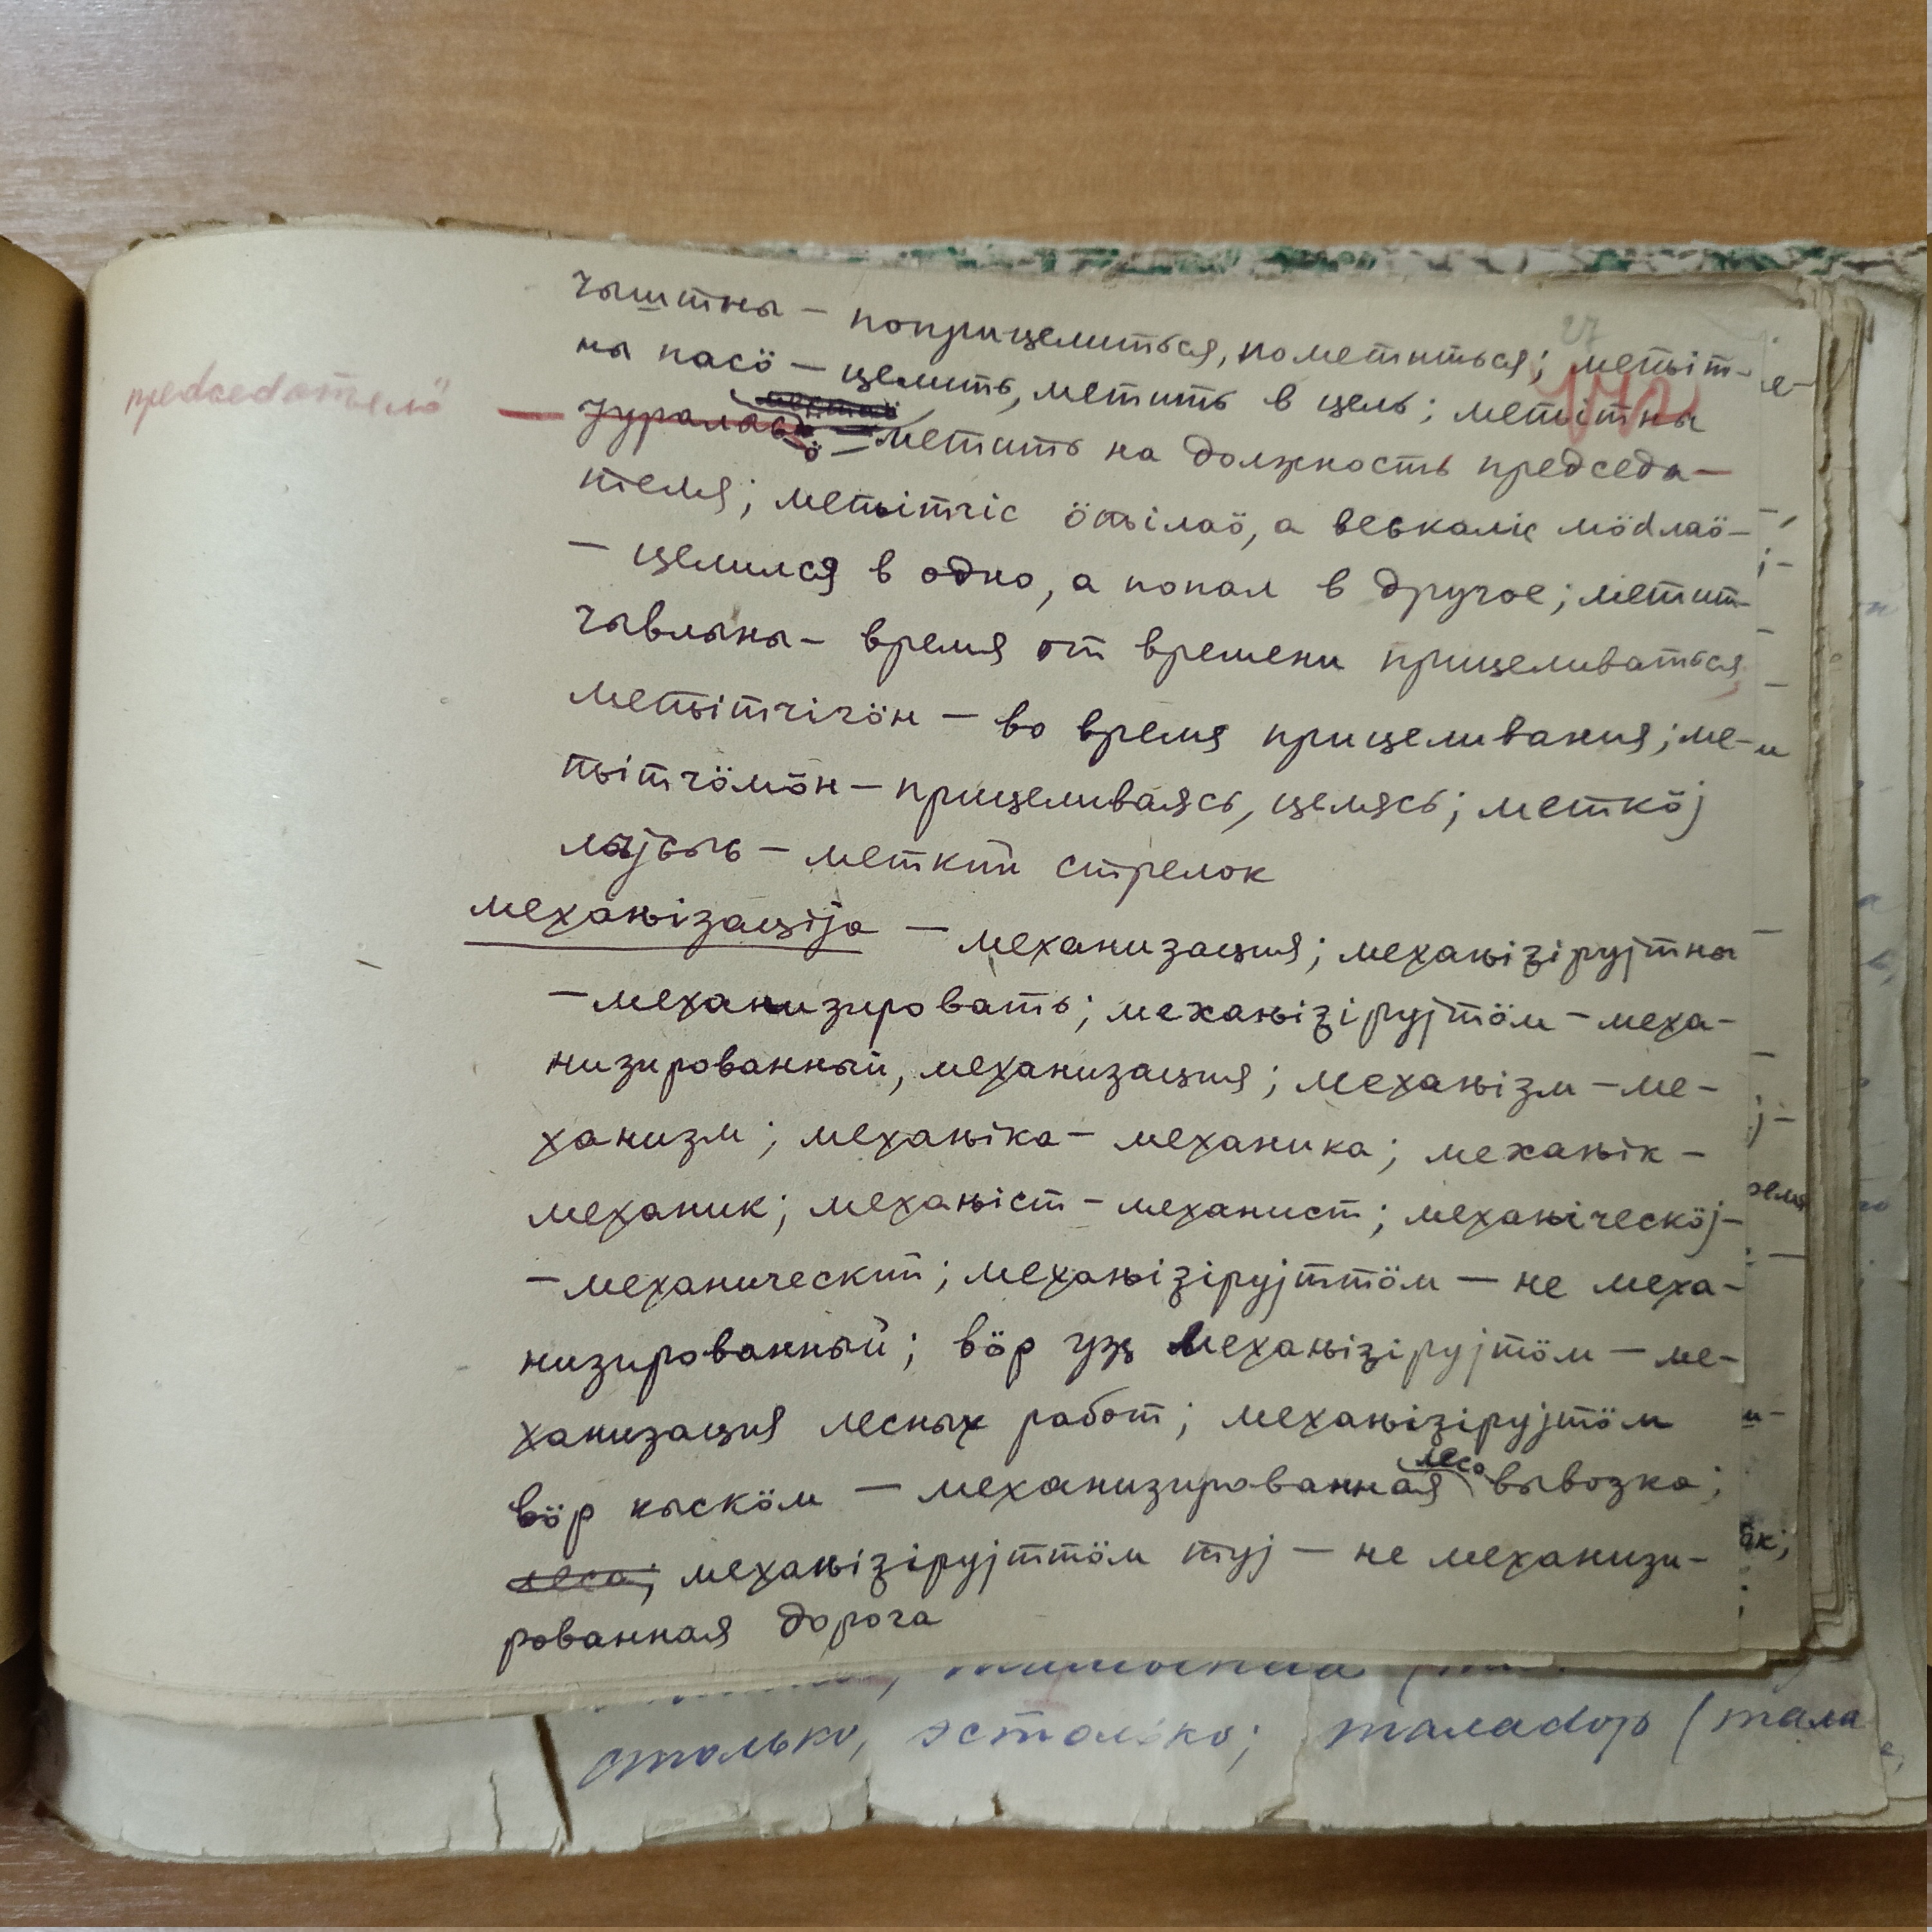 чыштны — поприцелиться, пометиться; метыт-
ны пасӧ — целить, метить в цель; метітны
предсеdательӧ — jуралыӧ — метить на должность председа-
теля; меԏітчіс ӧԏілаӧ, а веськаліс мӧdлаӧ —
— целился в одно, а попал в другое; метит-
чывлыны — время от времени прицеливаться
меԏітчігӧн — во время прицеливания; ме-
ԏітчӧмӧн — прицеливаясь, целясь; меткӧj
лыjсыԍ — меткий стрелок
механізаціја — механизация; механізіруjтны
— механизировать; механізіруjтӧм — меха-
низированный, механизация; механізм — ме-
ханизм; механіка — механика; механік —
механик; механіст — механист; механіческӧj —
— механический; механізіруjттӧм — не меха-
низированный; вӧр уҗ механізіруjтӧм — ме-
ханизация лесных работ; механізіруjтӧм
вӧр кыскӧм — механизированная лесовывозка;
леса; механізіруjттӧм туj — не механизи-
рованная дорога
столько, эстолько; талаdор (тала